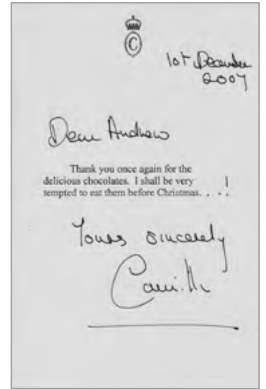 C
10th December
2007
Dear Andrew
Thank you once again for the
delicious chocolates. I shall be very
tempted to eat them before Christmas. . . . !
Yours sincerely
Camilla